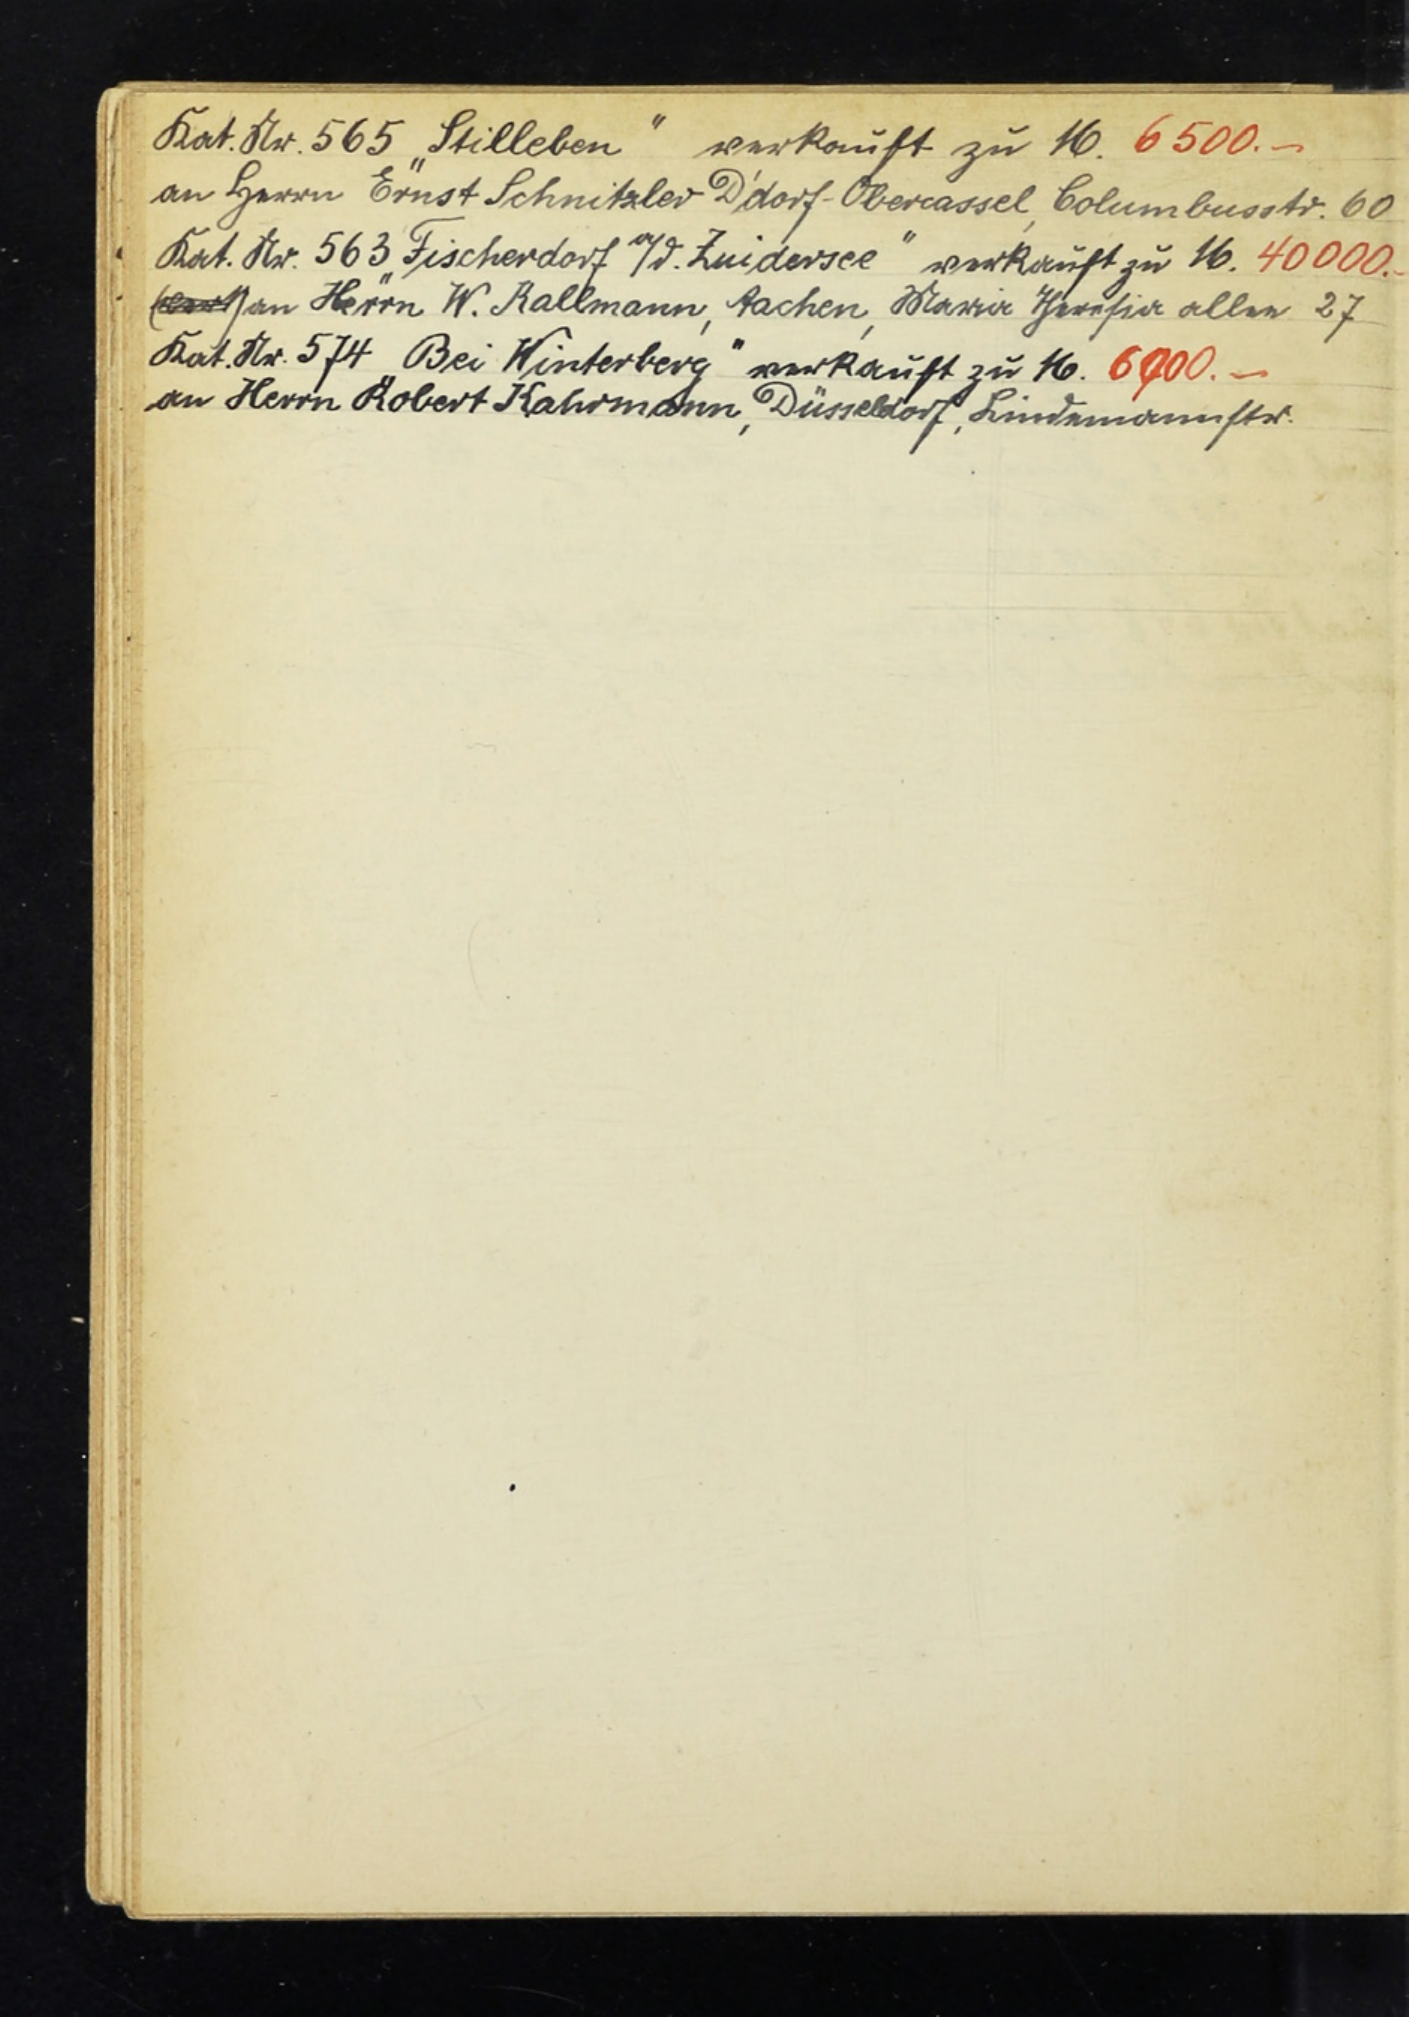 Kat. Nr. 565 „Stilleben" verkauft zu M. 6500.—
an Herrn Ernst Schnitzler D'dorf-Obercassel, Columbusstr. 60
Kat. Nr. 563 „Fischerdorf a/d. Zuidersee" verkauft zu M. 40000.-
an Herrn W. Rallmann, Aachen, Maria Theresia allee 27
Kat. Nr. 574 „Bei Winterberg" verkauft zu M. 6000.—
an Herrn Robert Kahrmann, Düsseldorf, Lindemannstr.